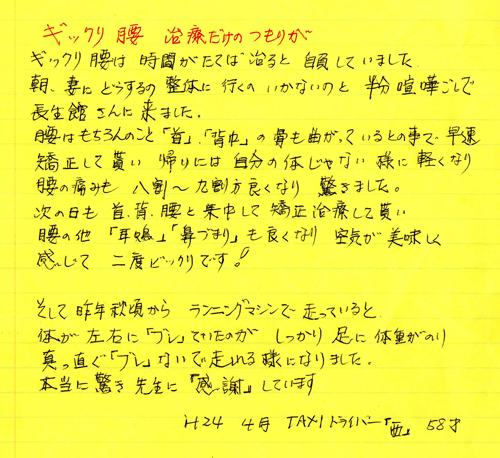 ギックリ腰 治療だけのつもりが
ギックリ腰は 時間がたてば治ると 自負していました
朝、妻に どうするの 整体に行くの いかないのと 半分喧嘩ごしで
長生館さんに来ました。
腰はもちろんのこと「首」、「背中」の骨も曲がっているとの事で 早速
矯正して貰い 帰りには 自分の体じゃない様に軽くなり
腰の痛みも 八割〜九割方良くなり 驚きました。
次の日も 首、背、腰と集中して 矯正治療して貰い
腰の他 「耳鳴」「鼻づまり」も良くなり 空気が美味しく
感じて 二度ビックリです!
そして 昨年秋頃から ランニングマシンで走っていると
体が 左右に「ブレ」ていたのが しっかり足に体重がのり
真っ直ぐ「ブレ」ないで走れる様になりました。
本当に驚き 先生に「感謝」しています
H24 4月 TAXIドライバー「西」 58才